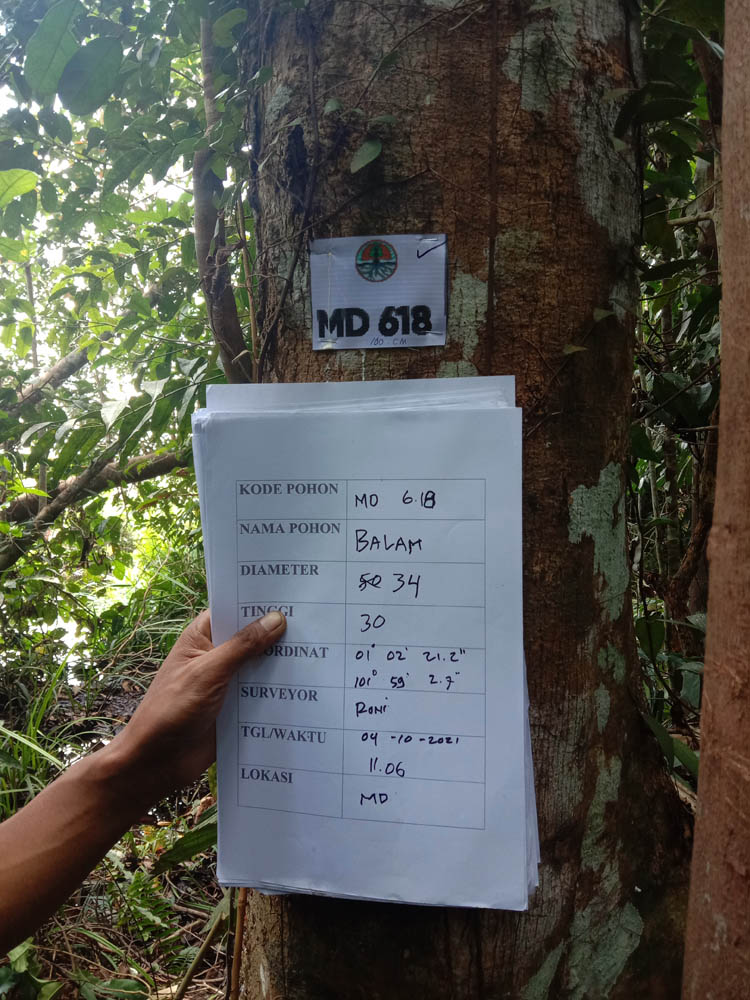 MD 618
100 CM
KODE POHON MD 618
NAMA POHON BALAM
DIAMETER 34
TINGGI 30
ORDINAT 01° 02' 21.2"
101° 59' 2.7"
SURVEYOR RONI
TGL/WAKTU 04-10-2021
11.06
LOKASI MD